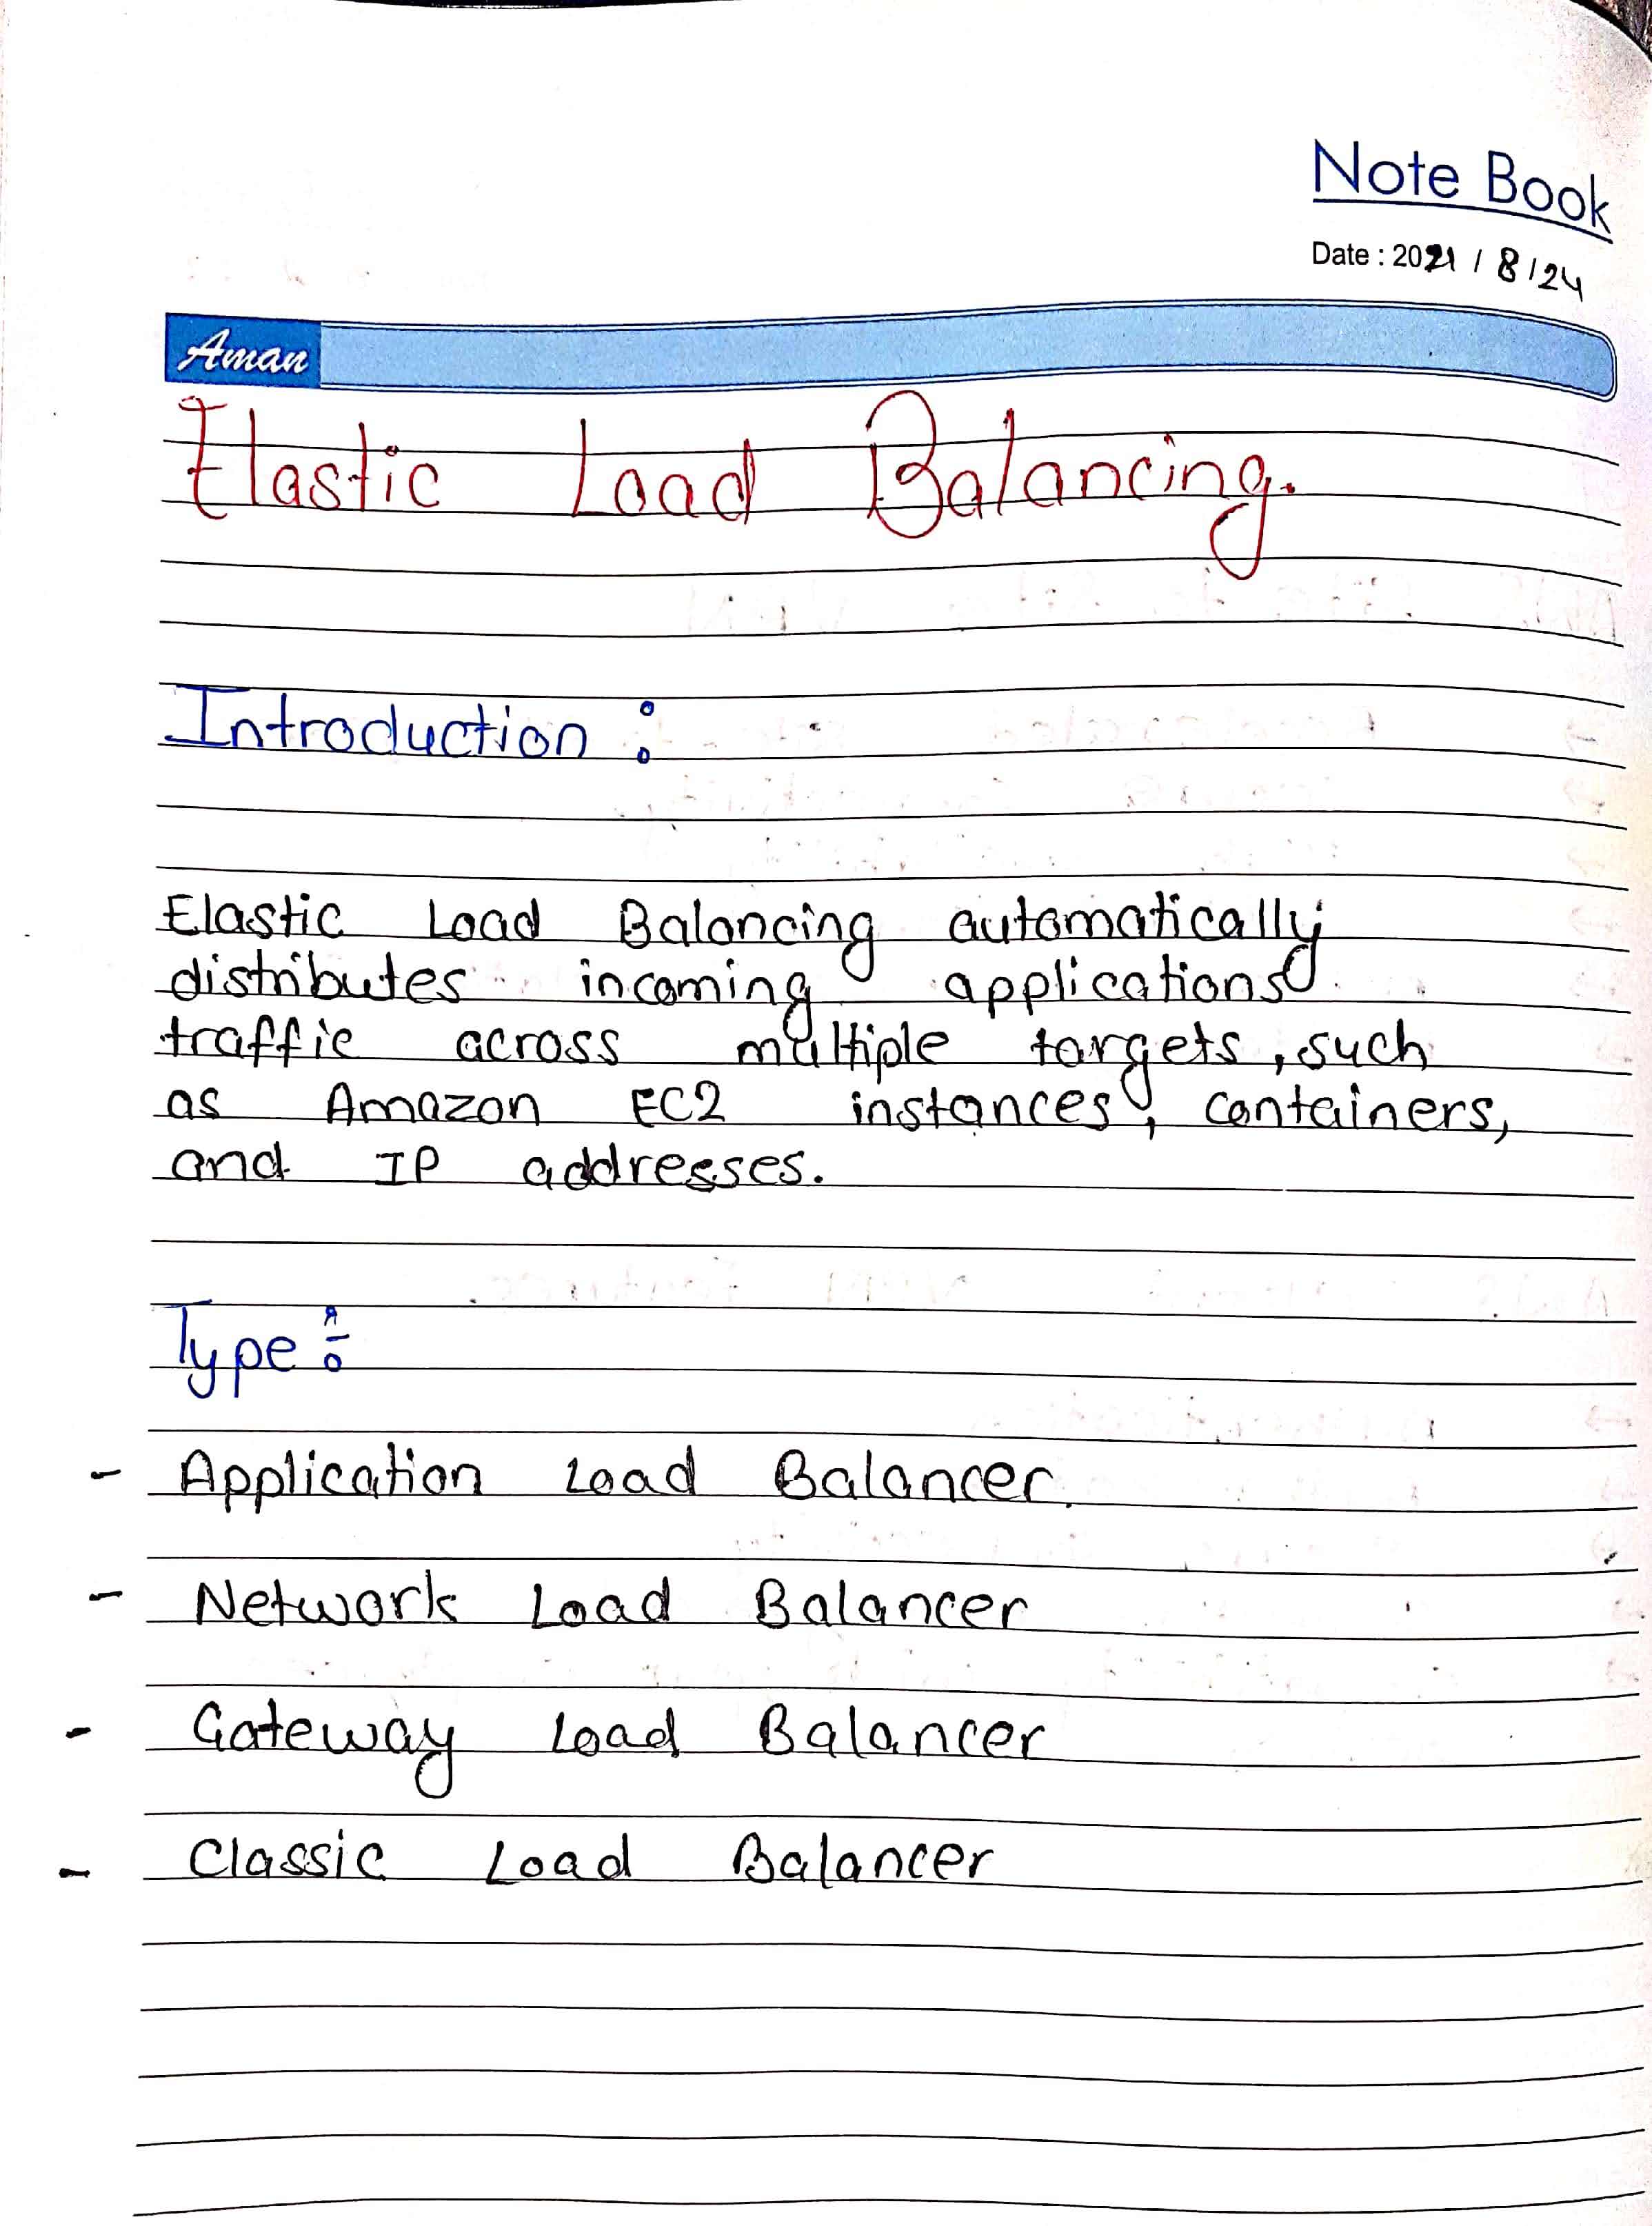 Note Book
Date : 2021 / 8 / 24
Aman
Elastic Load Balancing.
Introduction :
Elastic Load Balancing automatically
distributes incoming applications
traffic across multiple targets, such
as Amazon EC2 instances, containers,
and IP addresses.
Type :
- Application Load Balancer.
- Network Load Balancer
- Gateway Load Balancer
- Classic Load Balancer